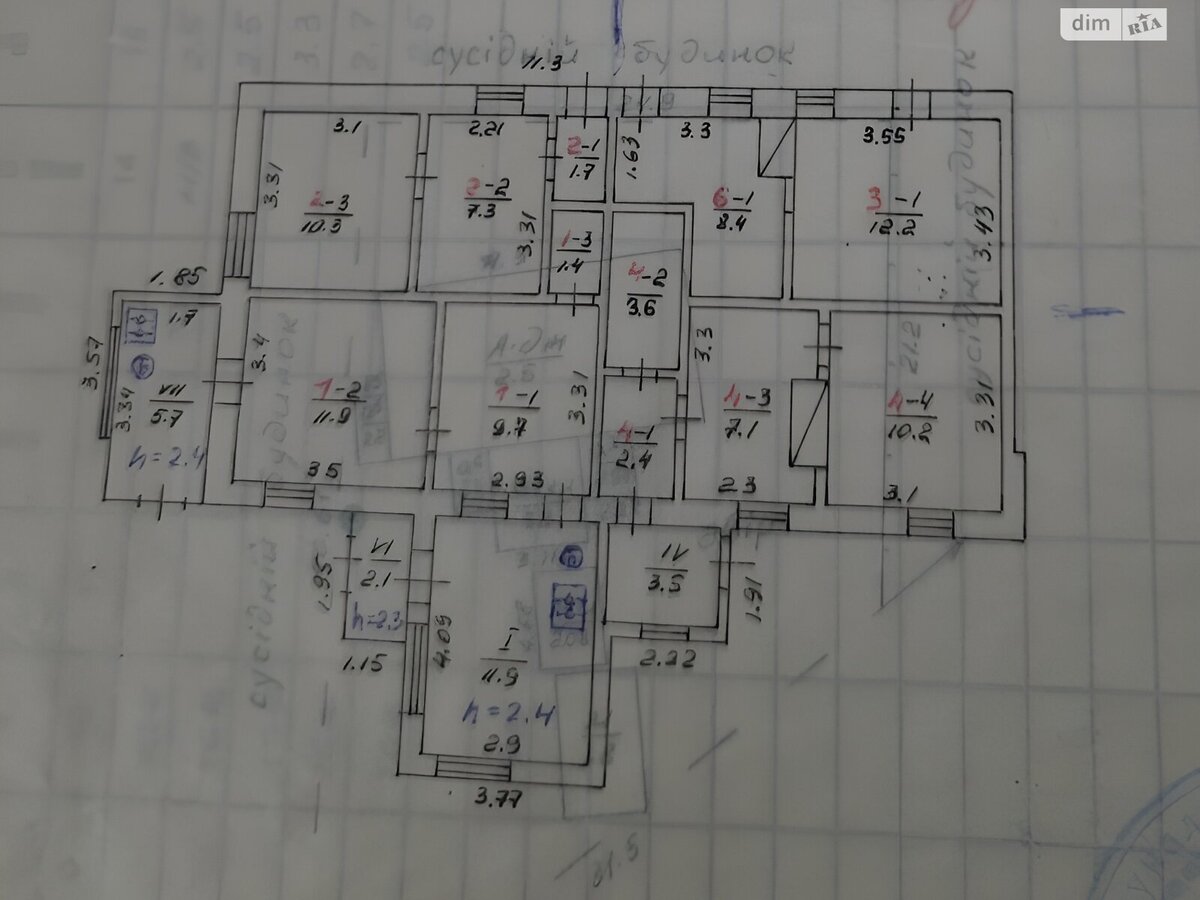 dim RIA
сусідній будинок
11.3
3.1
2.21
2-1
1.7
1.63
3.3
3.55
3.31
2-3
10.3
2-2
7.3
3.31
6-1
8.4
3-1
12.2
3.43
1-3
1.4
4-2
3.6
1.85
1.7
3.57
3.34
VII
5.7
h=2.4
3.4
1-2
11.9
35
1-1
9.7
3.31
2.93
4-1
2.4
3.3
4-3
7.1
23
4-4
10.2
3.31
3.1
21.2
сусідній будинок
сусідній будинок
VI
2.1
h=2.3
1.95
1.15
4.09
I
11.9
h=2.4
2.9
3.77
IV
3.5
1.91
2.22
21.5